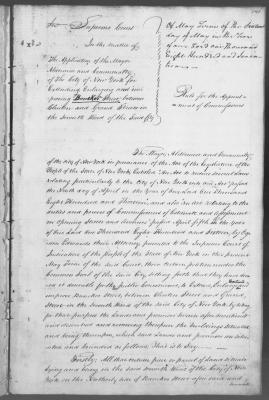 Supreme Court
In the matter of
The Application of the Mayor
Aldermen and Commonalty
of The City of New York for
Extending Enlarging and im=
proving Street between
Clinton and Grand Streets in
the Seventh Ward of the said City
Of May Term of the Second
day of May in the Year
of our Lord one Thousand
Eight Hundred and
Rule for the Appoint
ment of Commissioners
The Mayor, Aldermen and Commonalty
of the City of New York in pursuance of the Act of the Legislature of the
People of the State of New York Entitled "An Act to reduce several laws
relating particularly to the City of New York into one Act" passed
the Ninth day of April in the Year of our Lord one Thousand
Eight Hundred and Thirteen, and also an Act relating to the
duties and powers of Commissioners of Estimate and Assessment
in opening Streets and Avenues passed April in the Year
of our Lord one Thousand Eight Hundred and Sixteen, by
Edwards their Attorney presented to the Supreme Court of
Judicature of the People of the State of New York in this present
May Term of the said Court, their certain petition under the
Common Seal of the said City, setting forth that they have deem
ed it desirable for the public convenience, to Extend, Enlarge and
improve Street, between Clinton Street and Grand
Street in the Seventh Ward of the said City of New York, by taking
for that purpose the lands and premises herein after described
and and removing therefrom the buildings situated
and being thereupon, which said lands and premises are situa
ted and bounded as follows, That is to Say
Firstly; All that certain piece or parcel of land situate
lying and being in the said Seventh Ward of the City of New
York on the Northerly side of Street aforesaid and